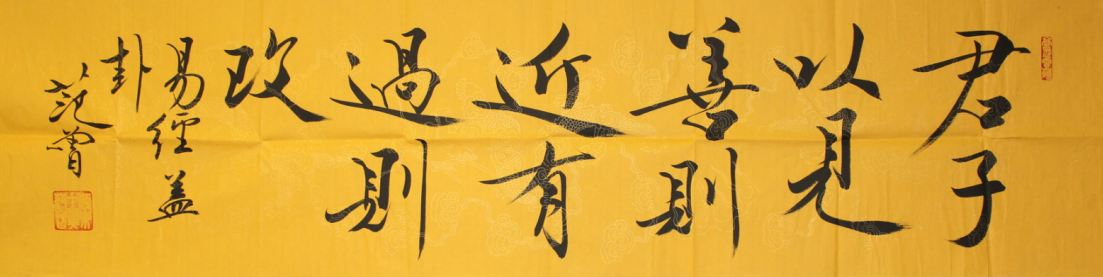 君子
以見
善則
近有
過則
改
易經益
卦
范曾